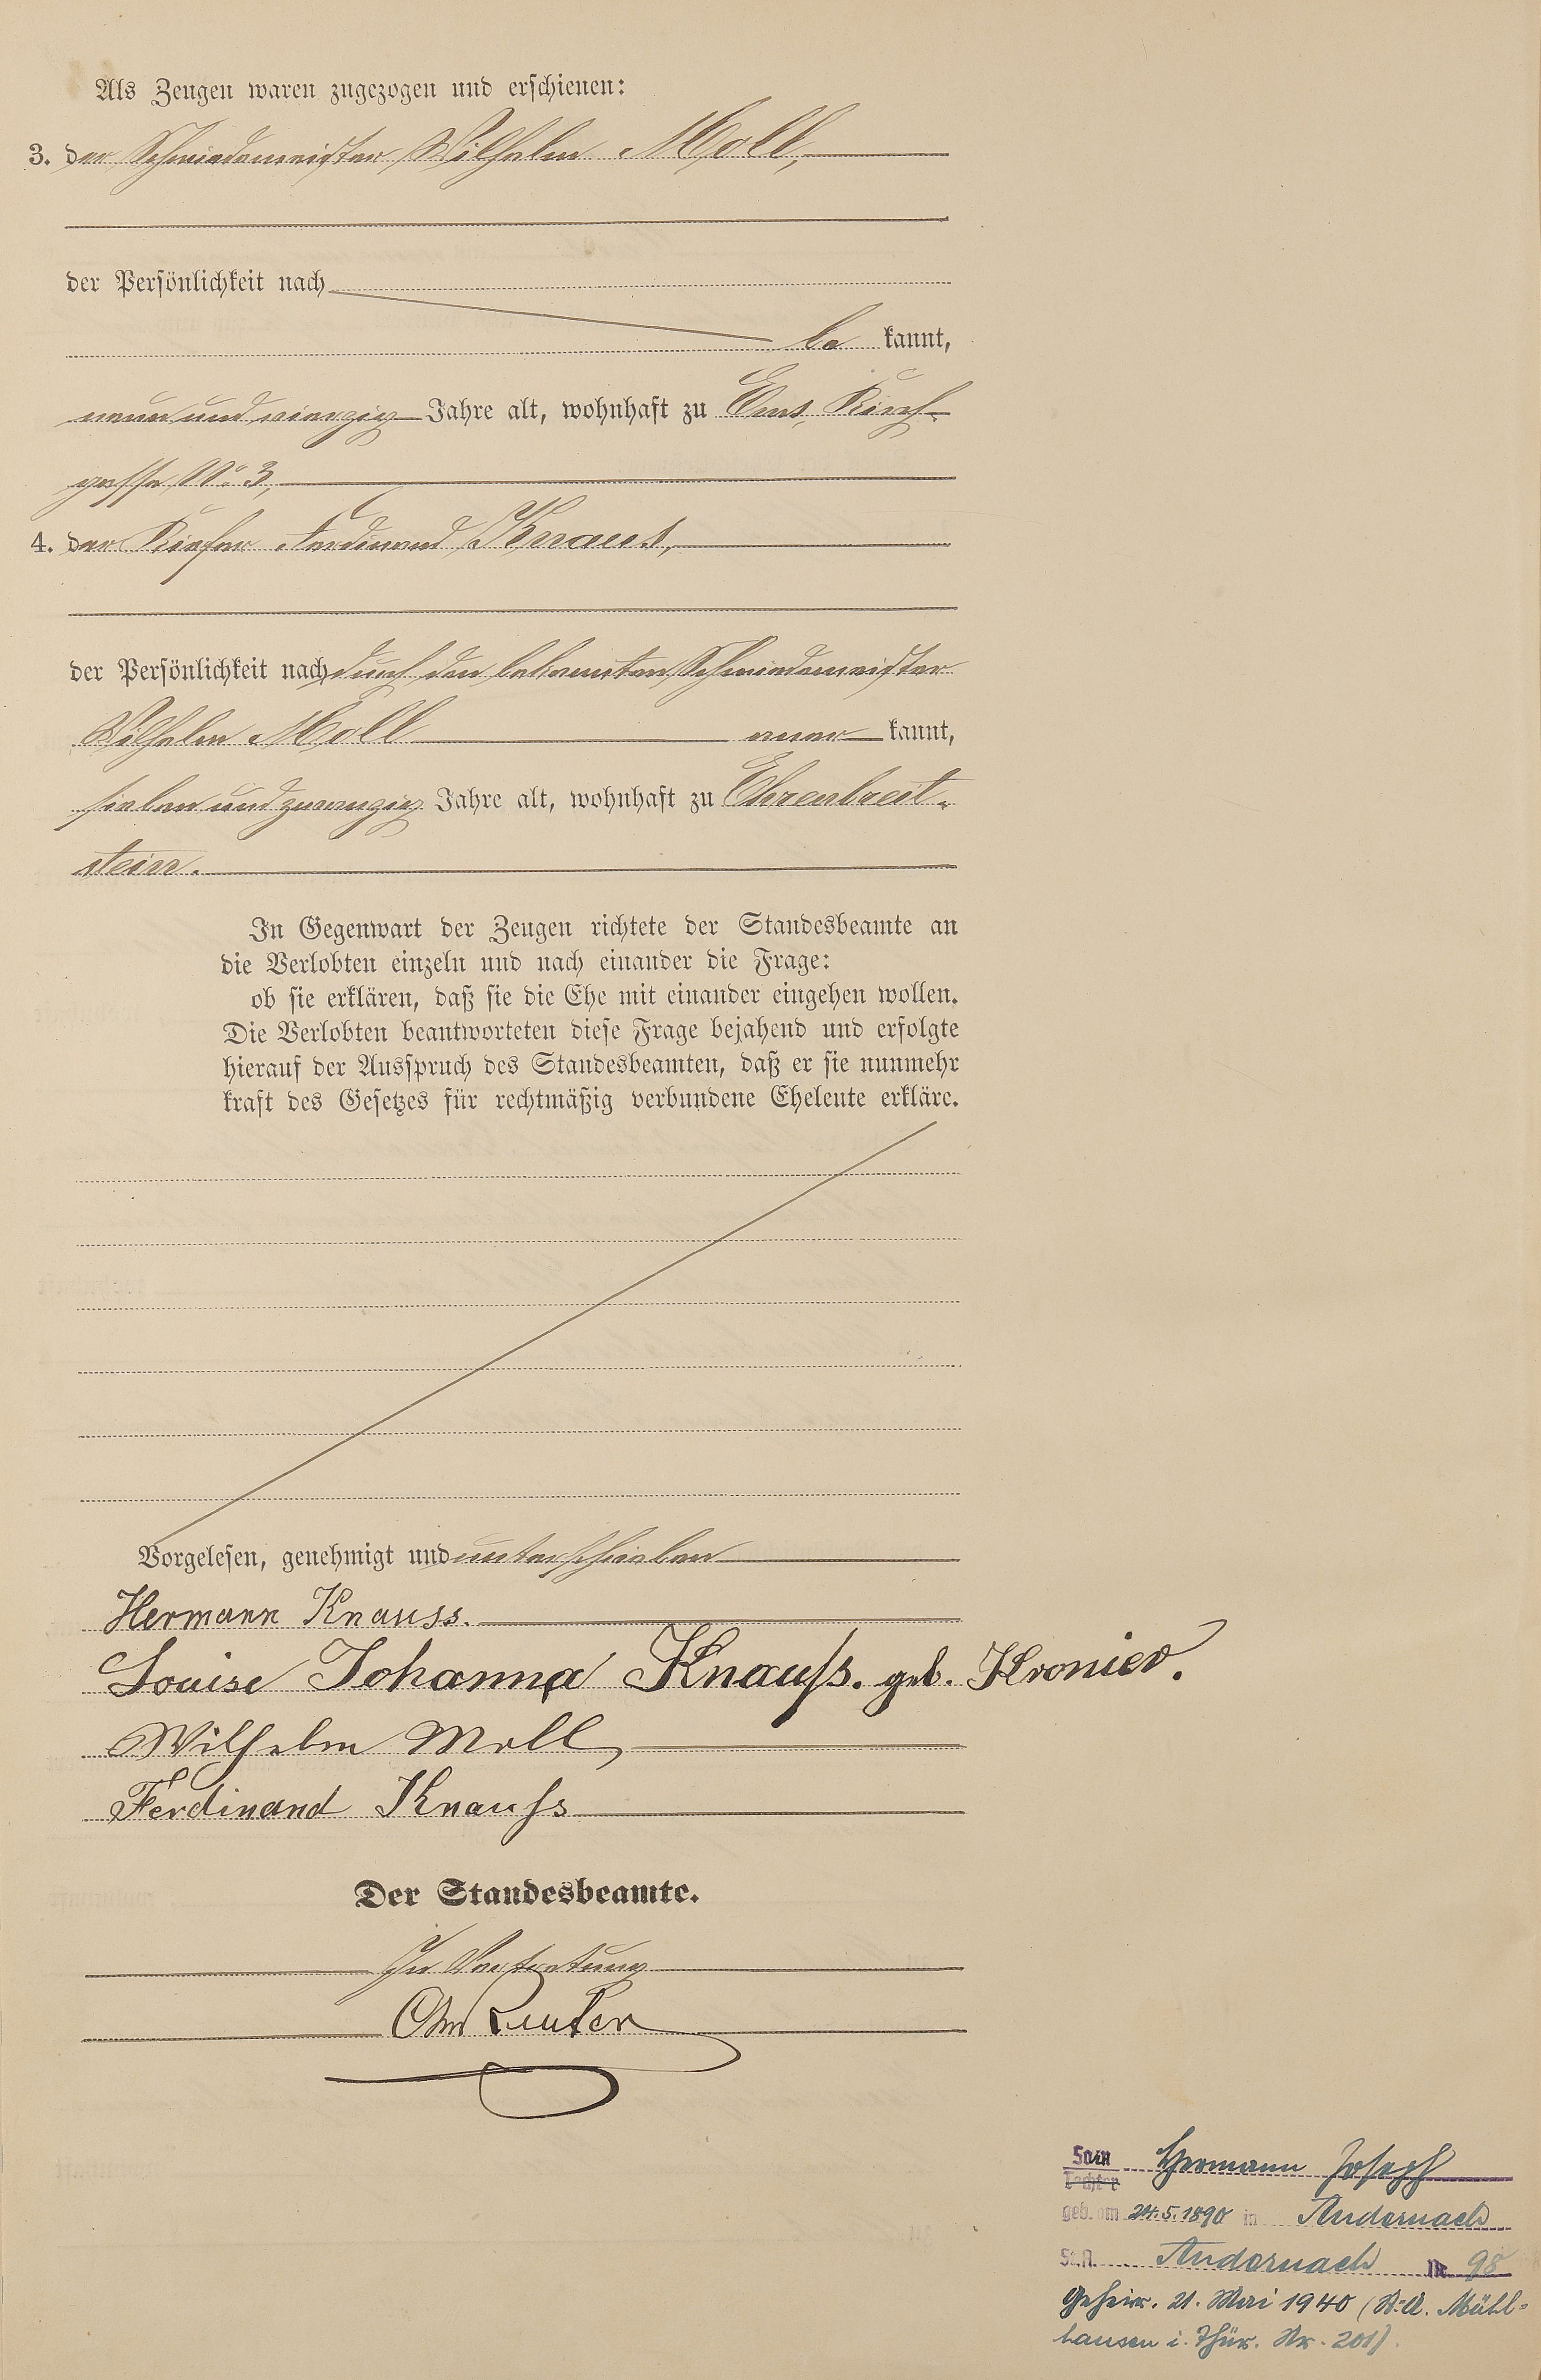 Als Zeugen waren zugezogen und erschienen:
3. der Schmiedemeister Wilhelm Moll,
der Persönlichkeit nach
be kannt,
neun und vierzig Jahre alt, wohnhaft zu Ems, Kirch-
gasse No. 3,
4. der Küfer Ferdinand Knauss,
der Persönlichkeit nach durch den bekannten Schmiedemeister
Wilhelm Moll aner kannt,
sieben und zwanzig Jahre alt, wohnhaft zu Ehrenbreit-
stein.
In Gegenwart der Zeugen richtete der Standesbeamte an
die Verlobten einzeln und nach einander die Frage:
ob sie erklären, daß sie die Ehe mit einander eingehen wollen.
Die Verlobten beantworteten diese Frage bejahend und erfolgte
hierauf der Ausspruch des Standesbeamten, daß er sie nunmehr
kraft des Gesetzes für rechtmäßig verbundene Eheleute erkläre.
Vorgelesen, genehmigt und unterschrieben
Hermann Knauss.
Louise Johanna Knauß. geb. Kronier.
Wilhelm Moll,
Ferdinand Knauss
Der Standesbeamte.
In Vertretung
Reuter
Sohn Hermann Joseph
Tochter
geb. am 24.5.1890 in Andernach
St.A. Andernach Nr. 98
Geheir. 21. Mai 1940 (St.A. Mühl-
hausen i. Thür. Nr. 201).